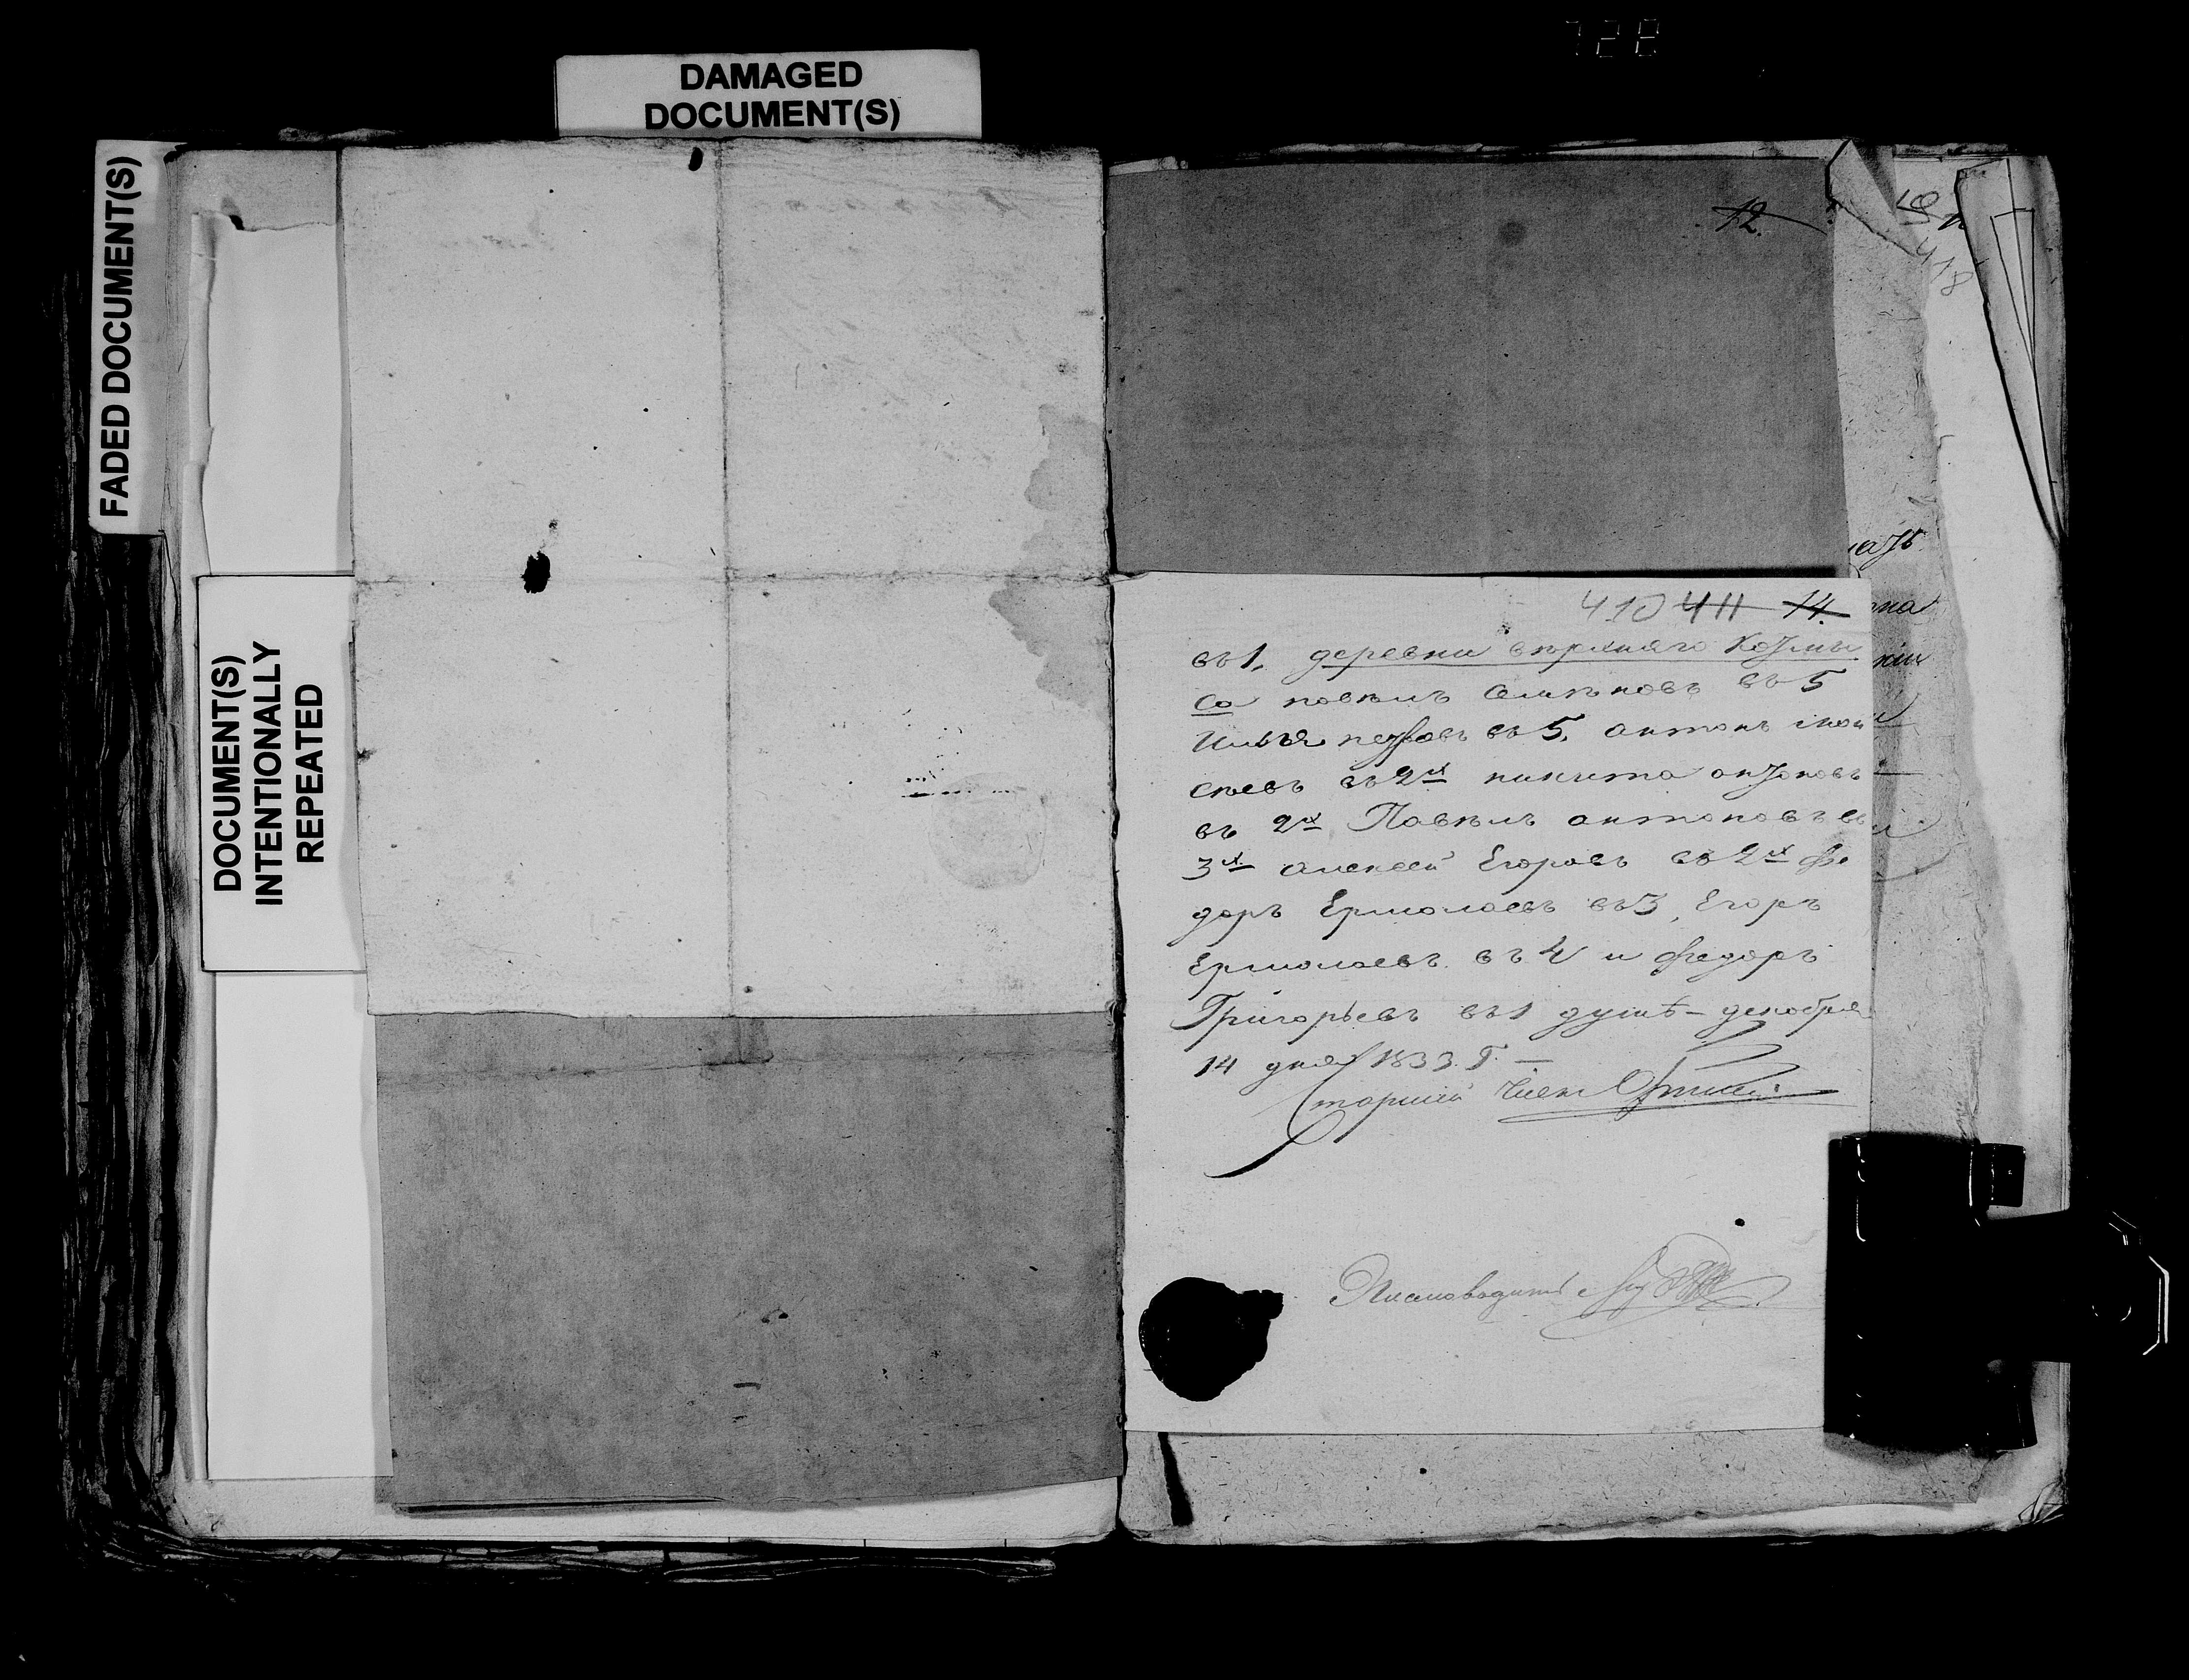 728
DAMAGED
DOCUMENT(S)
FADED DOCUMENT(S)
DOCUMENT(S)
INTENTIONALLY
REPEATED
12.
418
410 411 14.
въ 1, деревни верхняго Козмы
са павелъ въ 5
Илья петровъ въ 5, антонъ
въ 2х никита антоновъ
въ 2х Павелъ антоновъ въ
3х алексей Егоровъ въ 2х Фе
доръ Ермолаевъ въ 3, Егоръ
Ермолаевъ въ 4 и Федоръ
Григорьевъ въ 1 душе – декабря
14 дня 1833. Г. —
Старшiй Членъ
Писмоводитель